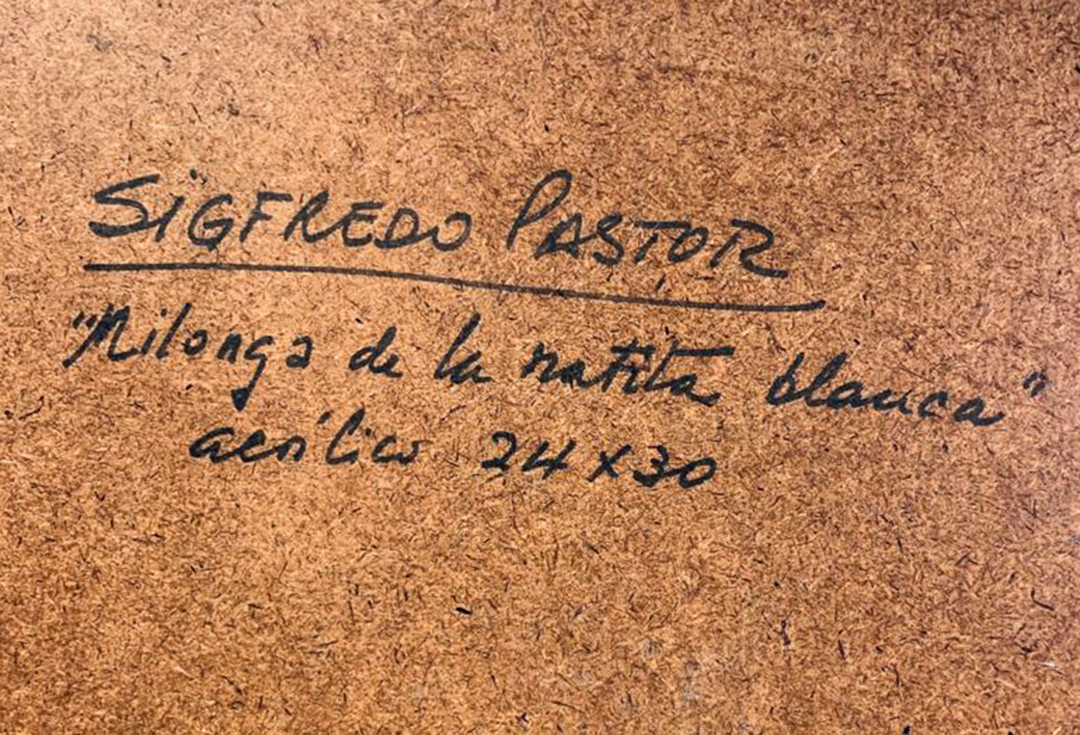 SIGFREDO PASTOR
"Milonga de la ratita blanca"
acrílico 24x30